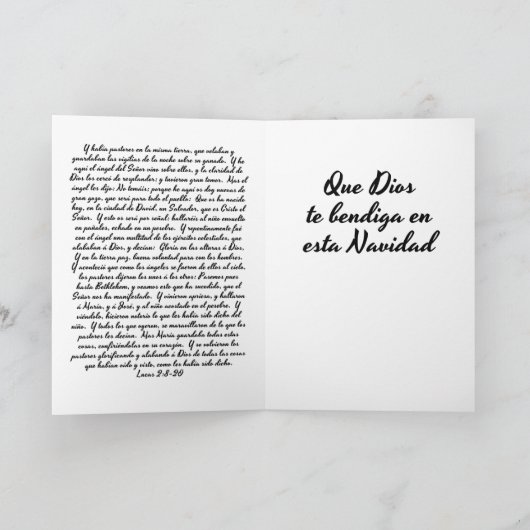 Y había pastores en la misma tierra, que velaban y
guardaban las vigilias de la noche sobre su ganado. Y he
aquí el ángel del Señor vino sobre ellos, y la claridad de
Dios los cercó de resplandor; y tuvieron gran temor. Mas el
ángel les dijo: No temáis; porque he aquí os doy nuevas de
gran gozo, que será para todo el pueblo: Que os ha nacido
hoy, en la ciudad de David, un Salvador, que es Cristo el
Señor. Y esto os será por señal: hallaréis al niño envuelto
en pañales, echado en un pesebre. Y repentinamente fué
con el ángel una multitud de los ejércitos celestiales, que
alababan á Dios, y decían: Gloria en las alturas á Dios,
Y en la tierra paz, buena voluntad para con los hombres.
Y aconteció que como los ángeles se fueron de ellos al cielo,
los pastores dijeron los unos á los otros: Pasemos pues
hasta Bethlehem, y veamos esto que ha sucedido, que el
Señor nos ha manifestado. Y vinieron apriesa, y hallaron
á María, y á José, y al niño acostado en el pesebre. Y
viéndolo, hicieron notorio lo que les había sido dicho del
niño. Y todos los que oyeron, se maravillaron de lo que los
pastores les decían. Mas María guardaba todas estas
cosas, confiriéndolas en su corazón. Y se volvieron los
pastores glorificando y alabando á Dios de todas las cosas
que habían oído y visto, como les había sido dicho.
Lucas 2:8-20
Que Dios
te bendiga en
esta Navidad